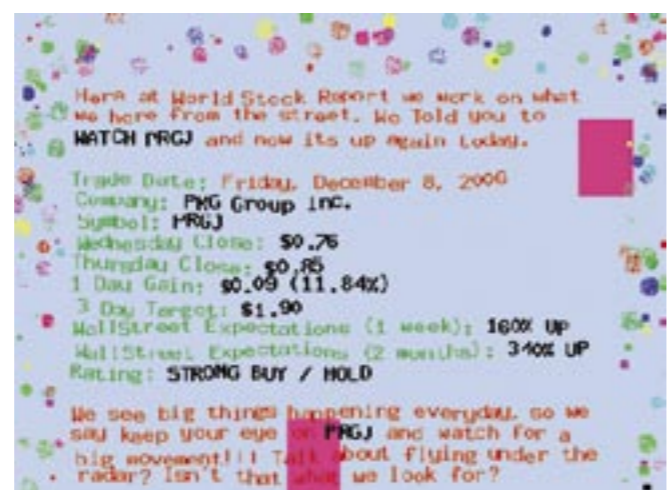 Here at World Stock Report we work on what
we here from the street. We Told you to
WATCH MRGJ and now its up again today.
Trade Date: Friday, December 8, 2006
Company: PMG Group Inc.
Symbol: MRGJ
Wednesday Close: $0.76
Thursday Close: $0.85
1 Day Gain: $0.09 (11.84%)
3 Day Target: $1.90
WallStreet Expectations (1 week): 160% UP
WallStreet Expectations (2 months): 340% UP
Rating: STRONG BUY / HOLD
We see big things happening everyday, so we
say keep your eye on MRGJ and watch for a
big movement!!! Talk about flying under the
radar? Isn't that what we look for?